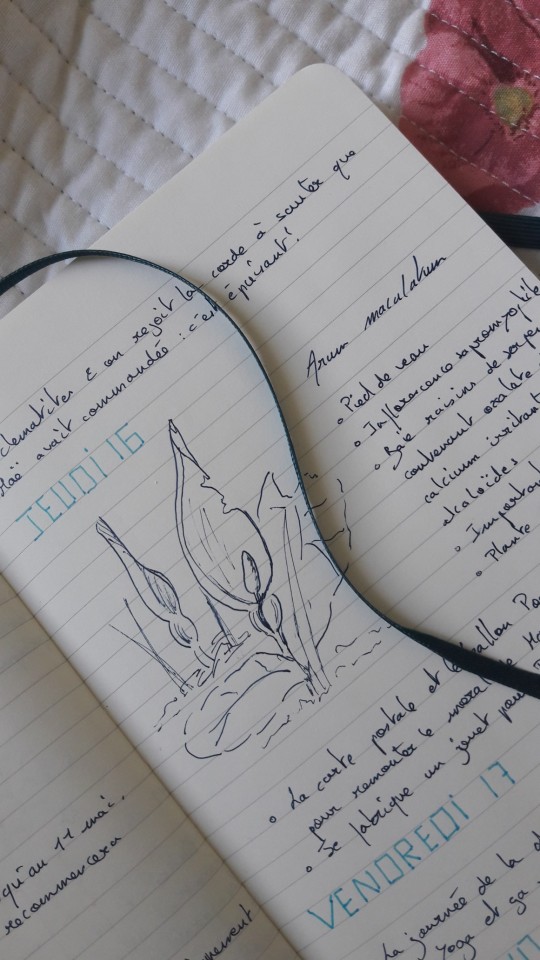 clematites & on reçoit la corde à sauter que
Maë avait commandée : c'est épuisant !
JEUDI 16
Arum maculatum
• Pied de veau
• Inflorescence
• Baie raisins de
contenant oxalate
calcium irritant
alcaloïdes
• Important
• Plante
• La carte postale et le ballon
pour remonter le moral
• Je fabrique un jouet pour
VENDREDI 17
La journée de la
yoga et ga
qu'au 11 mai.
recommencera